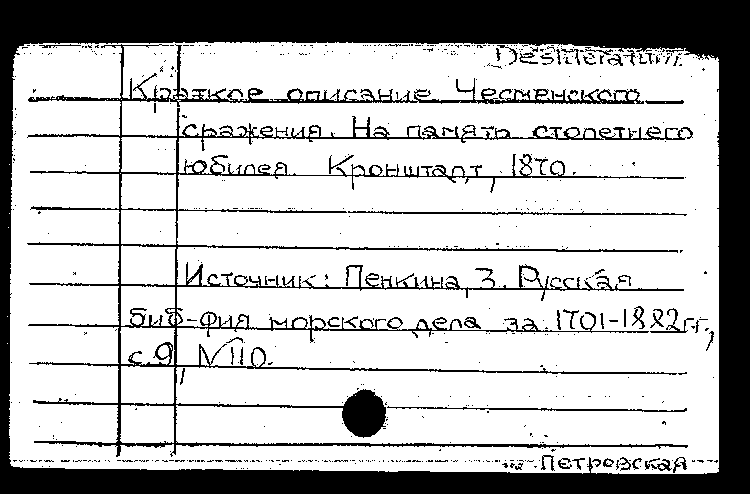 Desideratum.
Краткое описание Чесменского
сражения. На память столетнего
юбилея. Кронштадт, 1870.
Источник: Пенкина, З. Русская
биб-фия морского дела за 1701-1882 гг.,
с. 9, №110.
Петровская